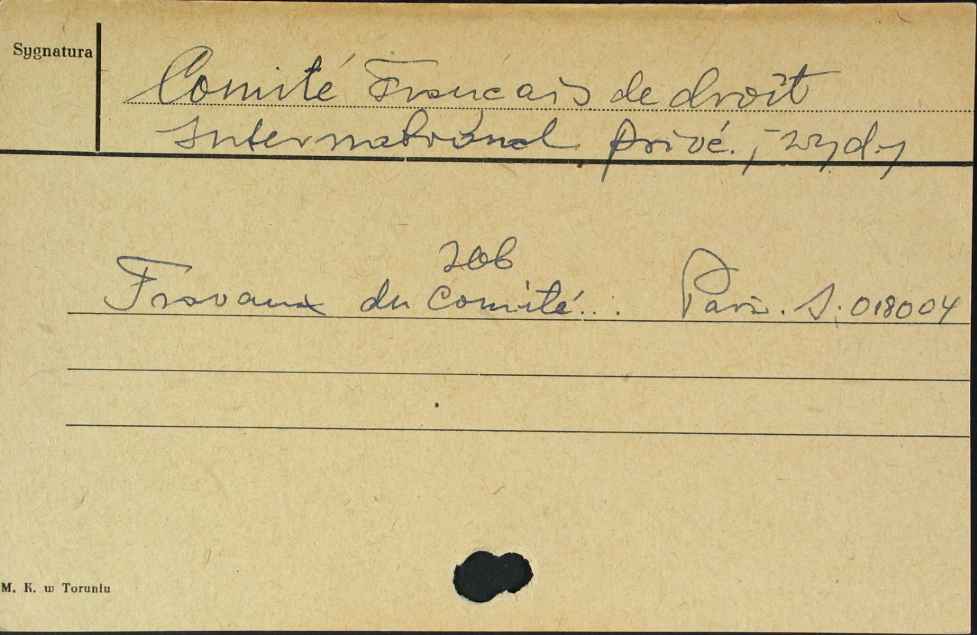 Sygnatura
Comité Français de droit
International privé, - wyd.
zob
Travaux du Comité... Paris. S. 018004
M. K. w Toruniu